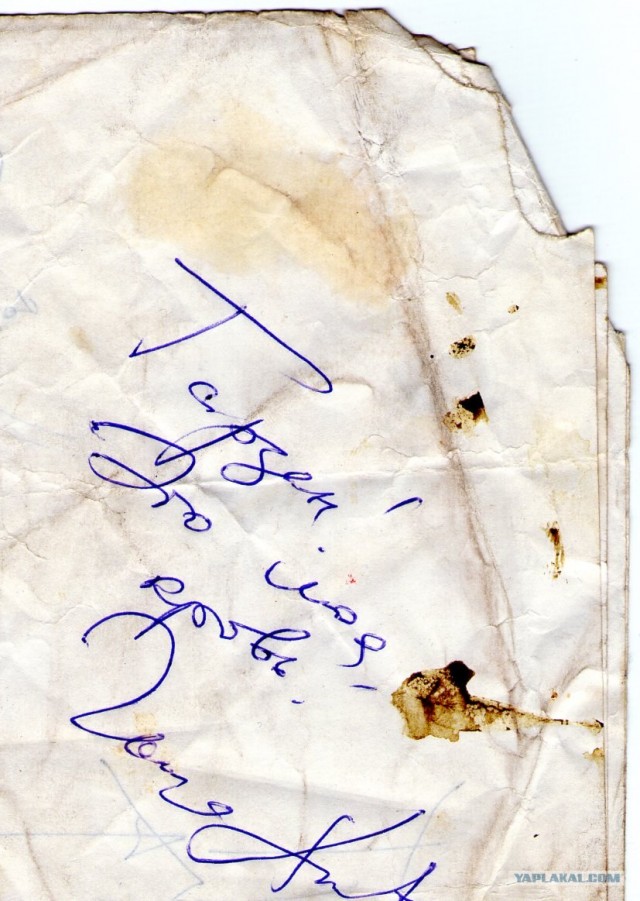 Тарзан!
Это моя -
кровь.
YAPLAKAL.COM